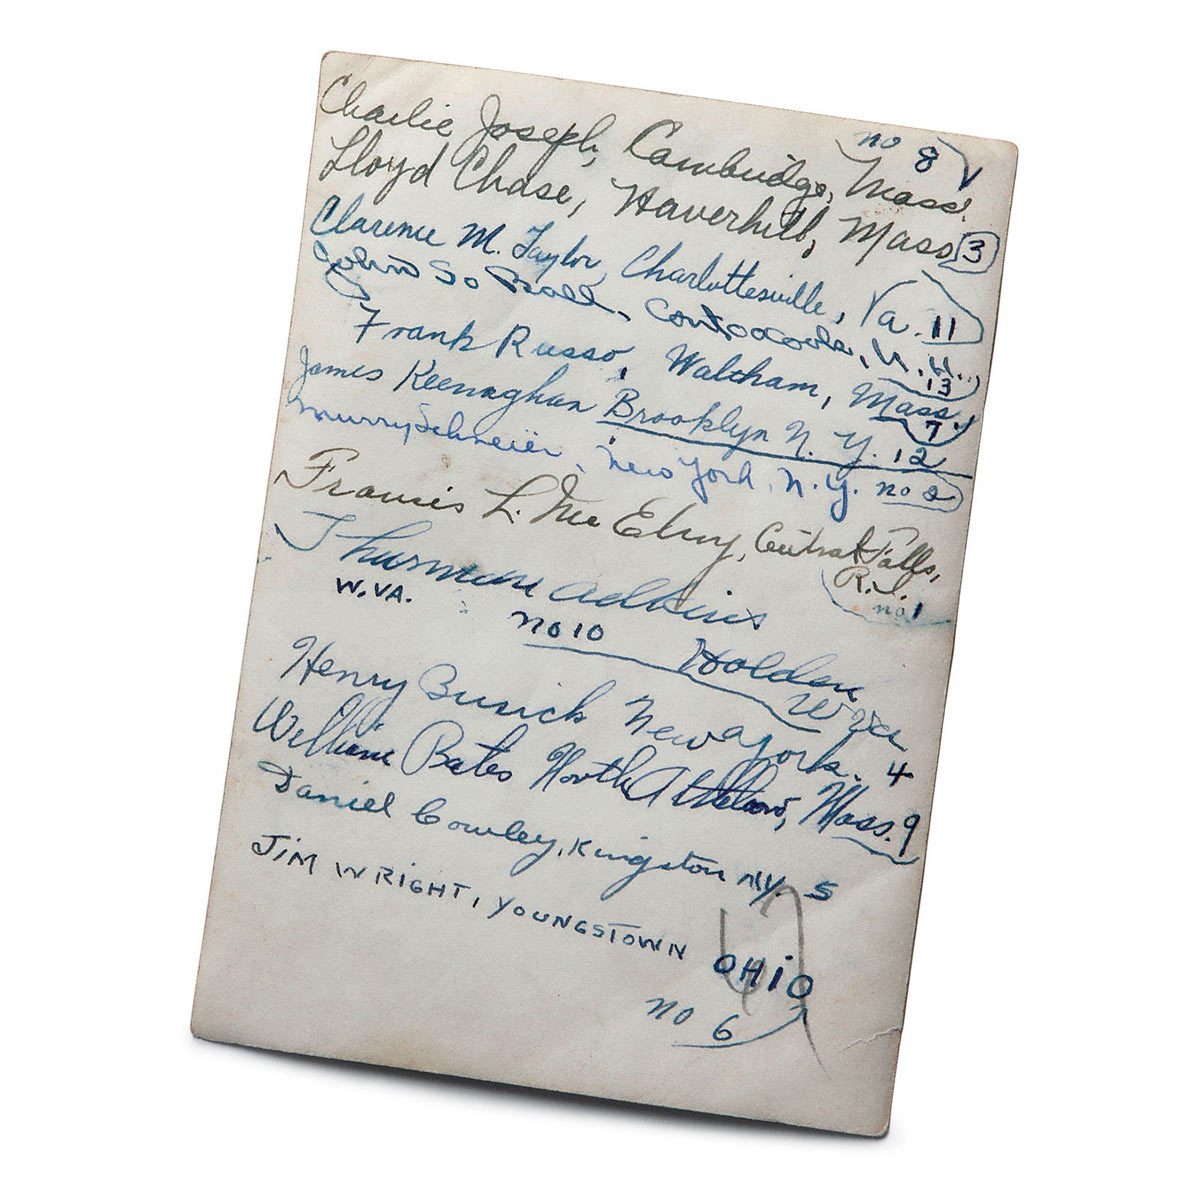 no 8
Charlie Joseph, Cambridge, Mass.
Lloyd Chase, Haverhill, Mass. 3
Clarence M. Taylor, Charlottesville, Va. 11
John So Ball, Contoocook, N.H. 13
Frank Russo, Waltham, Mass. 7
James Keenaghan Brooklyn N.Y. 12
Murry Schneier, New York, N.Y. no 2
Francis L. McElroy, Central Falls, R.I. no 1
Thurman Adkins
W.VA. no 10 Holden W Va
Henry Busick New York. 4
William Bates North Mass. 9
Daniel Cowley, Kingston NY. 5
JIM WRIGHT, YOUNGSTOWN OHIO
no 6